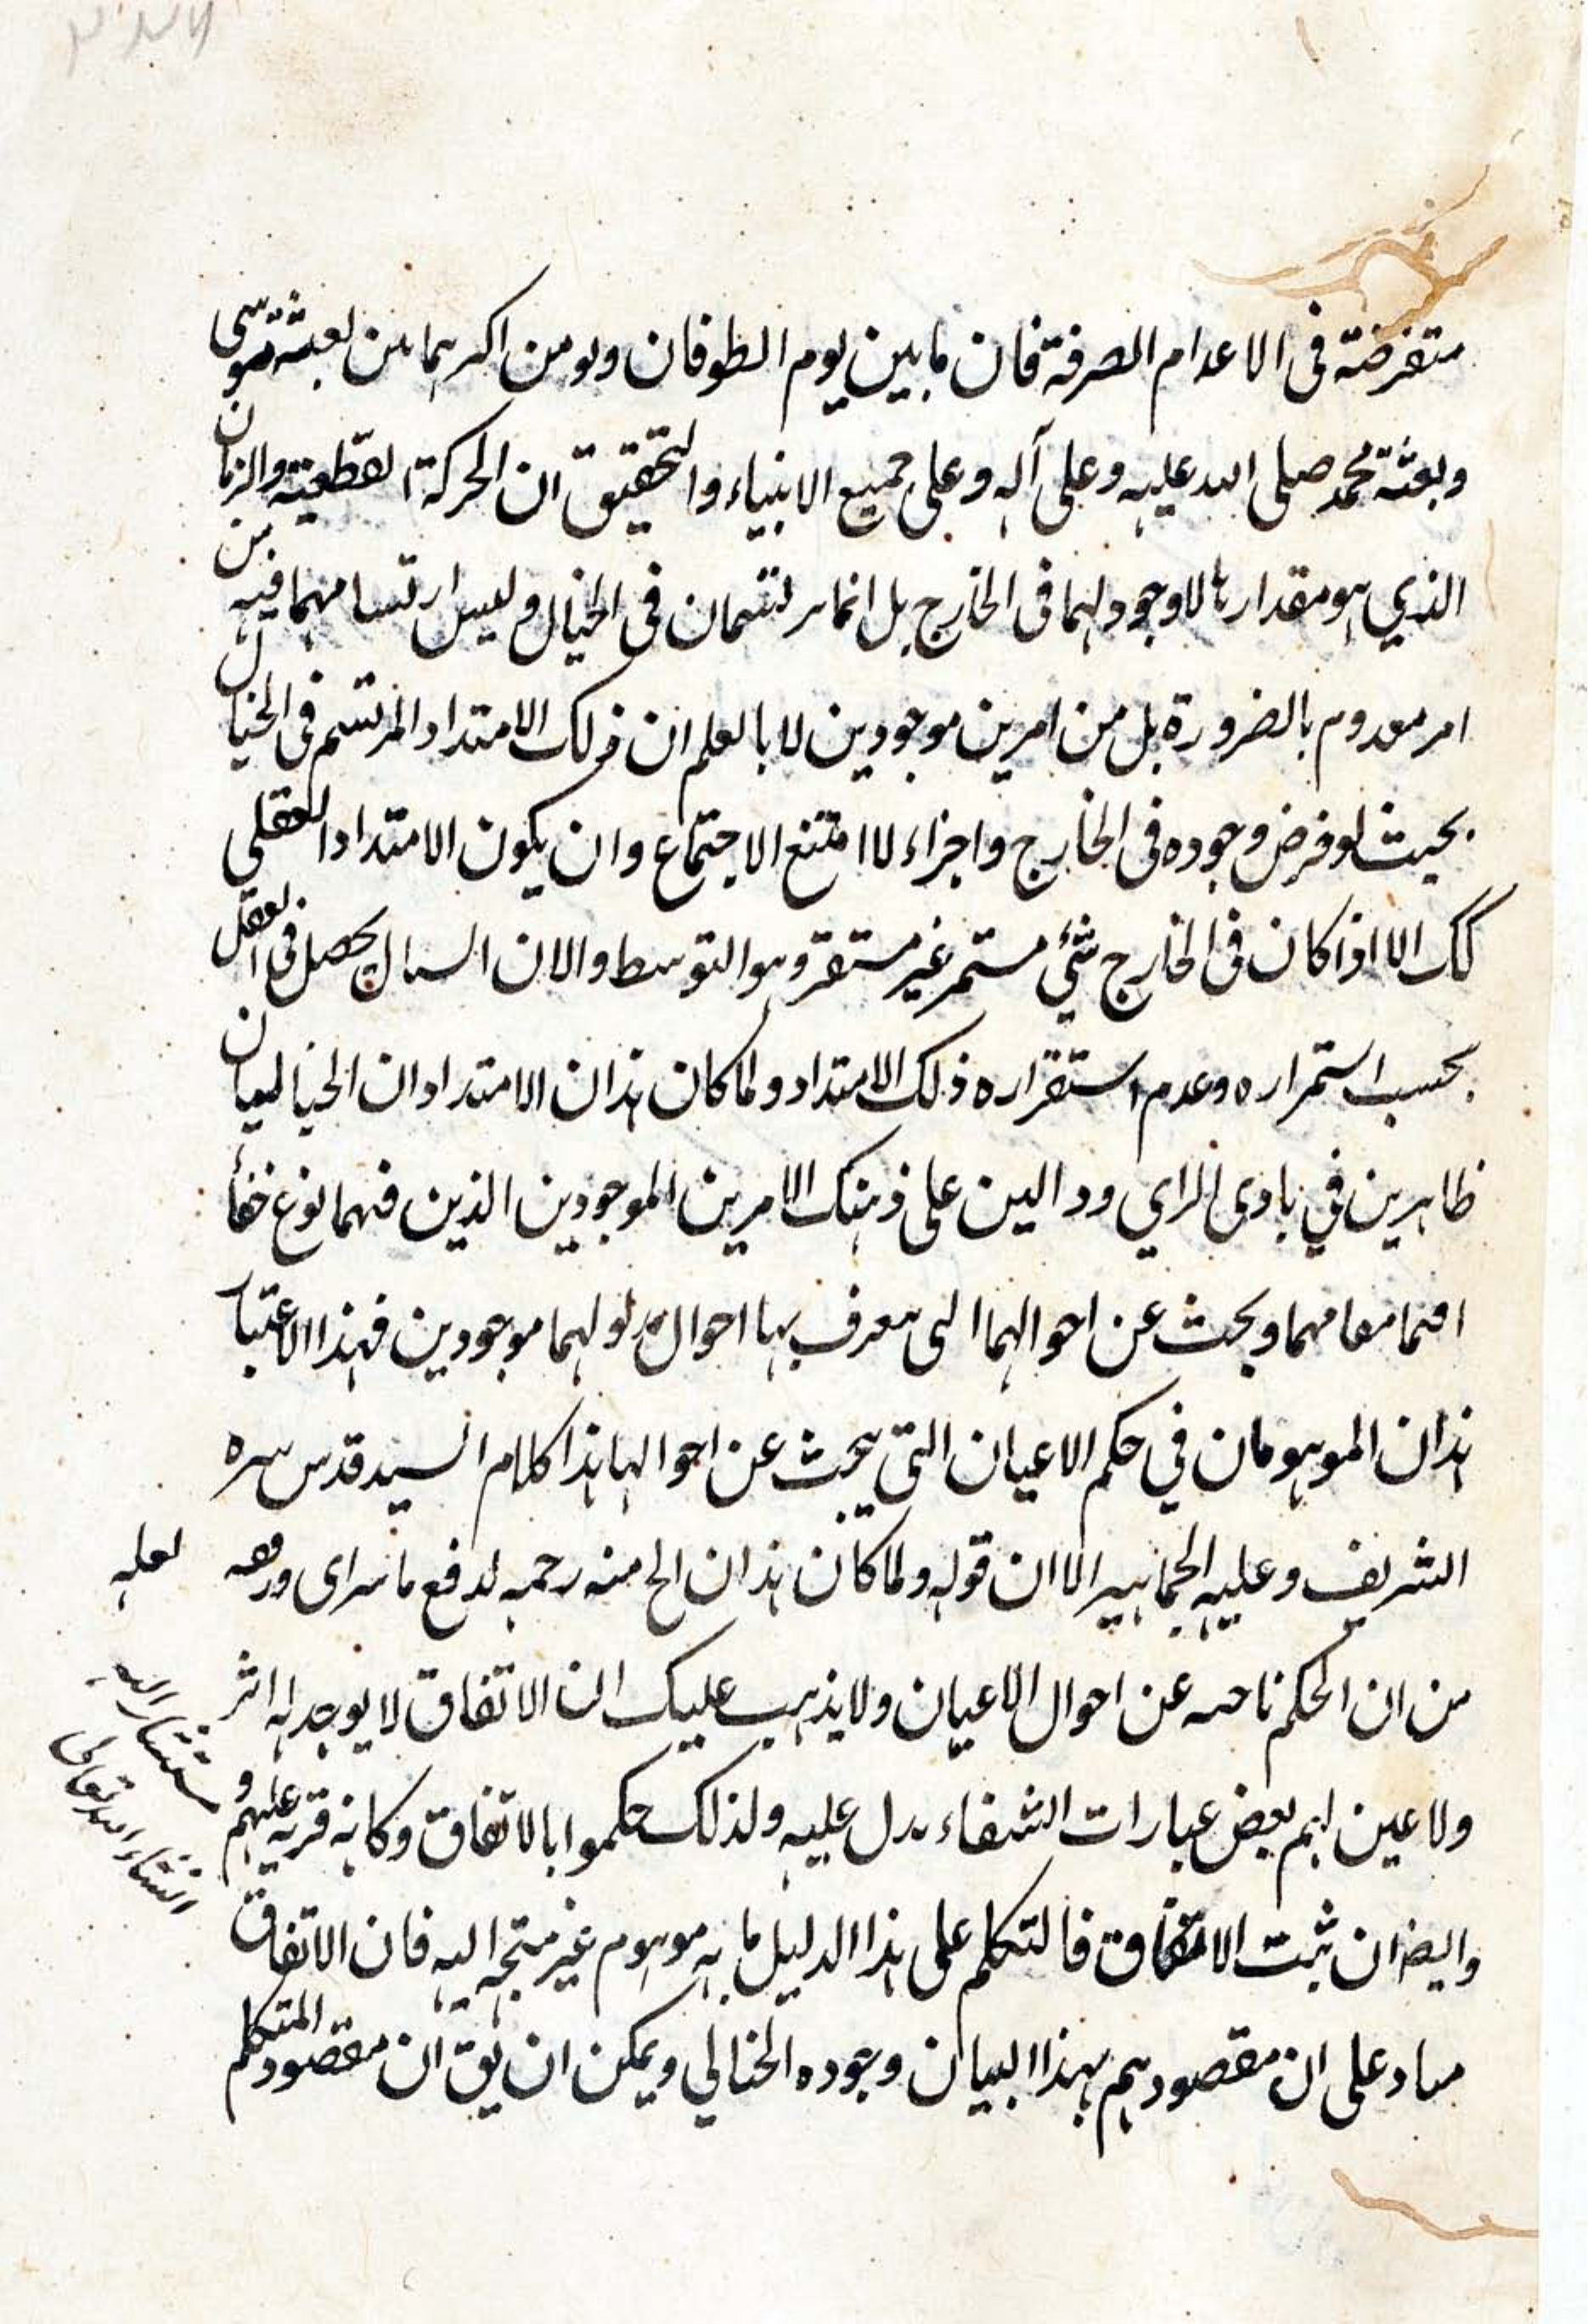 متفرضة فى الاعدام الصرفة فان ما بين يوم الطوفان ويومن اكبر مما بين بعثة موسى
وبعثة محمد صلى الله عليه وعلى آله وعلى جميع الانبياء والتحقيق ان الحركة القطعية والزمان
الذي هو مقدارها لا وجود لهما فى الخارج بل انما يرتسمان فى الخيال وليس ارتسامهما فيه من
امر معدوم بالضرورة بل من امرين موجودين لانا بالعلم ان ذلك الامتداد المرتسم فى الخيال
بحيث لو فرض وجوده فى الخارج واجزاء لا امتنع الاجتماع وان يكون الامتداد العقلى
كك الا اذا كان فى الخارج شئ مستمر غير مستقر وهو التوسط والان السيال يحصل فى العقل
بحسب استمراره وعدم استقراره ذلك الامتداد ولما كان هذان الامتدادان الخياليان
ظاهرين في بادى الراي ودالين على ذينك الامرين الموجودين الذين فيهما نوع خفأ
اقيما مقامهما وبحث عن احوالهما التى يعرف بها احوال مدلولهما موجودين فبهذا الاعتبار
هذان الموهومان في حكم الاعيان التي يبحث عن احوالها هذا كلام السيد قدس سره
الشريف وعليه الجماهير الا ان قوله ولما كان هذان الخ منه رحمه لدفع ما يتراى وروده
لعله
من ان الحكم باحث عن احوال الاعيان ولا يذهب عليك ان الاتفاق لا يوجد له اثر
ولا عين لهم بعض عبارات الشفاء يدل عليه ولذلك حكموا بالاتفاق وكانه فرية عليهم و
ستشار اليه
انشاء الله تعالى
وايضا ان ثبت الاتفاق فالتكلم على هذا الدليل ما به موهوم غير متجه اليه فان الاتفاق
مناد على ان مقصودهم بهذا البيان وجوده الخيالي ويمكن ان يق ان مقصود المتكلم